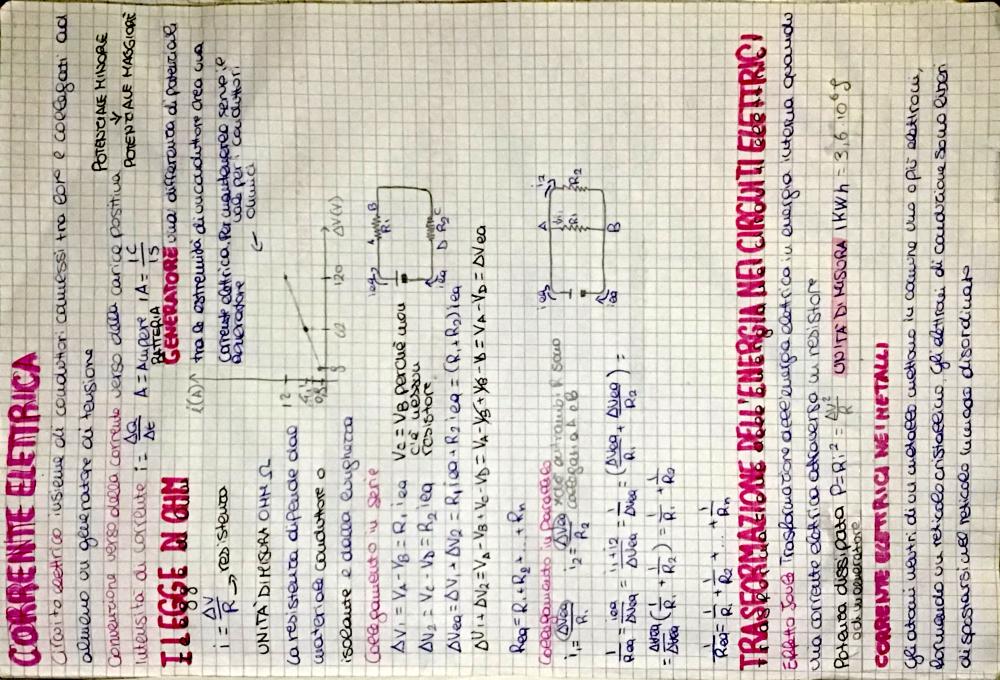 CORRENTE ELETTRICA
Circuito elettrico insieme di conduttori connessi tra loro e collegati ad
almeno un generatore di tensione
POTENZIALE MINORE
↓
POTENZIALE MAGGIORE
Convenzione verso della corrente verso della carica positiva
Intensità di corrente i = ΔQ/Δt A = Ampere 1A = 1C/1S
BATTERIA
GENERATORE una differenza di potenziale
tra le estremità di un conduttore crea una
corrente elettrica. Per mantenerla serve il
generatore
vale per i conduttori
ohmici
I LEGGE DI OHM
i = ΔV/R → resistenza
UNITÀ DI MISURA OHM Ω
La resistenza dipende dal
materiale conduttore o
isolante e dalla lunghezza
i(A)
12
60
120
ΔV(V)
Collegamento in serie
ΔV1 = VA - VB = R1 ieq
VB = VC perché non
c'è nessun
resistore
ΔV2 = VC - VD = R2 ieq
ΔVeq = ΔV1 + ΔV2 = R1 ieq + R2 ieq = (R1 + R2) ieq
ΔV1 + ΔV2 = VA - VB + VC - VD = VA - VB + VB - VD = VA - VD = ΔVeq
Req = R1 + R2 + ... + Rn
ieq
A
R1
B
ieq
D
R2
C
Collegamento in parallelo
i1 = ΔVeq/R1 i2 = ΔVeq/R2 entrambi R sono
collegati a A e B
1/Req = ieq/ΔVeq = i1+i2/ΔVeq = 1/ΔVeq (ΔVeq/R1 + ΔVeq/R2) =
= ΔVeq/ΔVeq (1/R1 + 1/R2) = 1/R1 + 1/R2
1/Req = 1/R1 + 1/R2 + ... + 1/Rn
ieq
A
i2
i1
R1
R2
B
ieq
TRASFORMAZIONE DELL'ENERGIA NEI CIRCUITI ELETTRICI
Effetto Joule Trasformazione dell'energia elettrica in energia interna quando
una corrente elettrica attraversa un resistore
Potenza dissipata P = Ri² = ΔV²/R UNITÀ DI MISURA 1 KWh = 3,6·10⁶ J
da un generatore
CORRENTE ELETTRICA NEI METALLI
Gli atomi neutri di un metallo mettono in comune uno o più elettroni,
formando un reticolo cristallino, gli elettroni di conduzione sono liberi
di spostarsi nel reticolo in modo disordinato